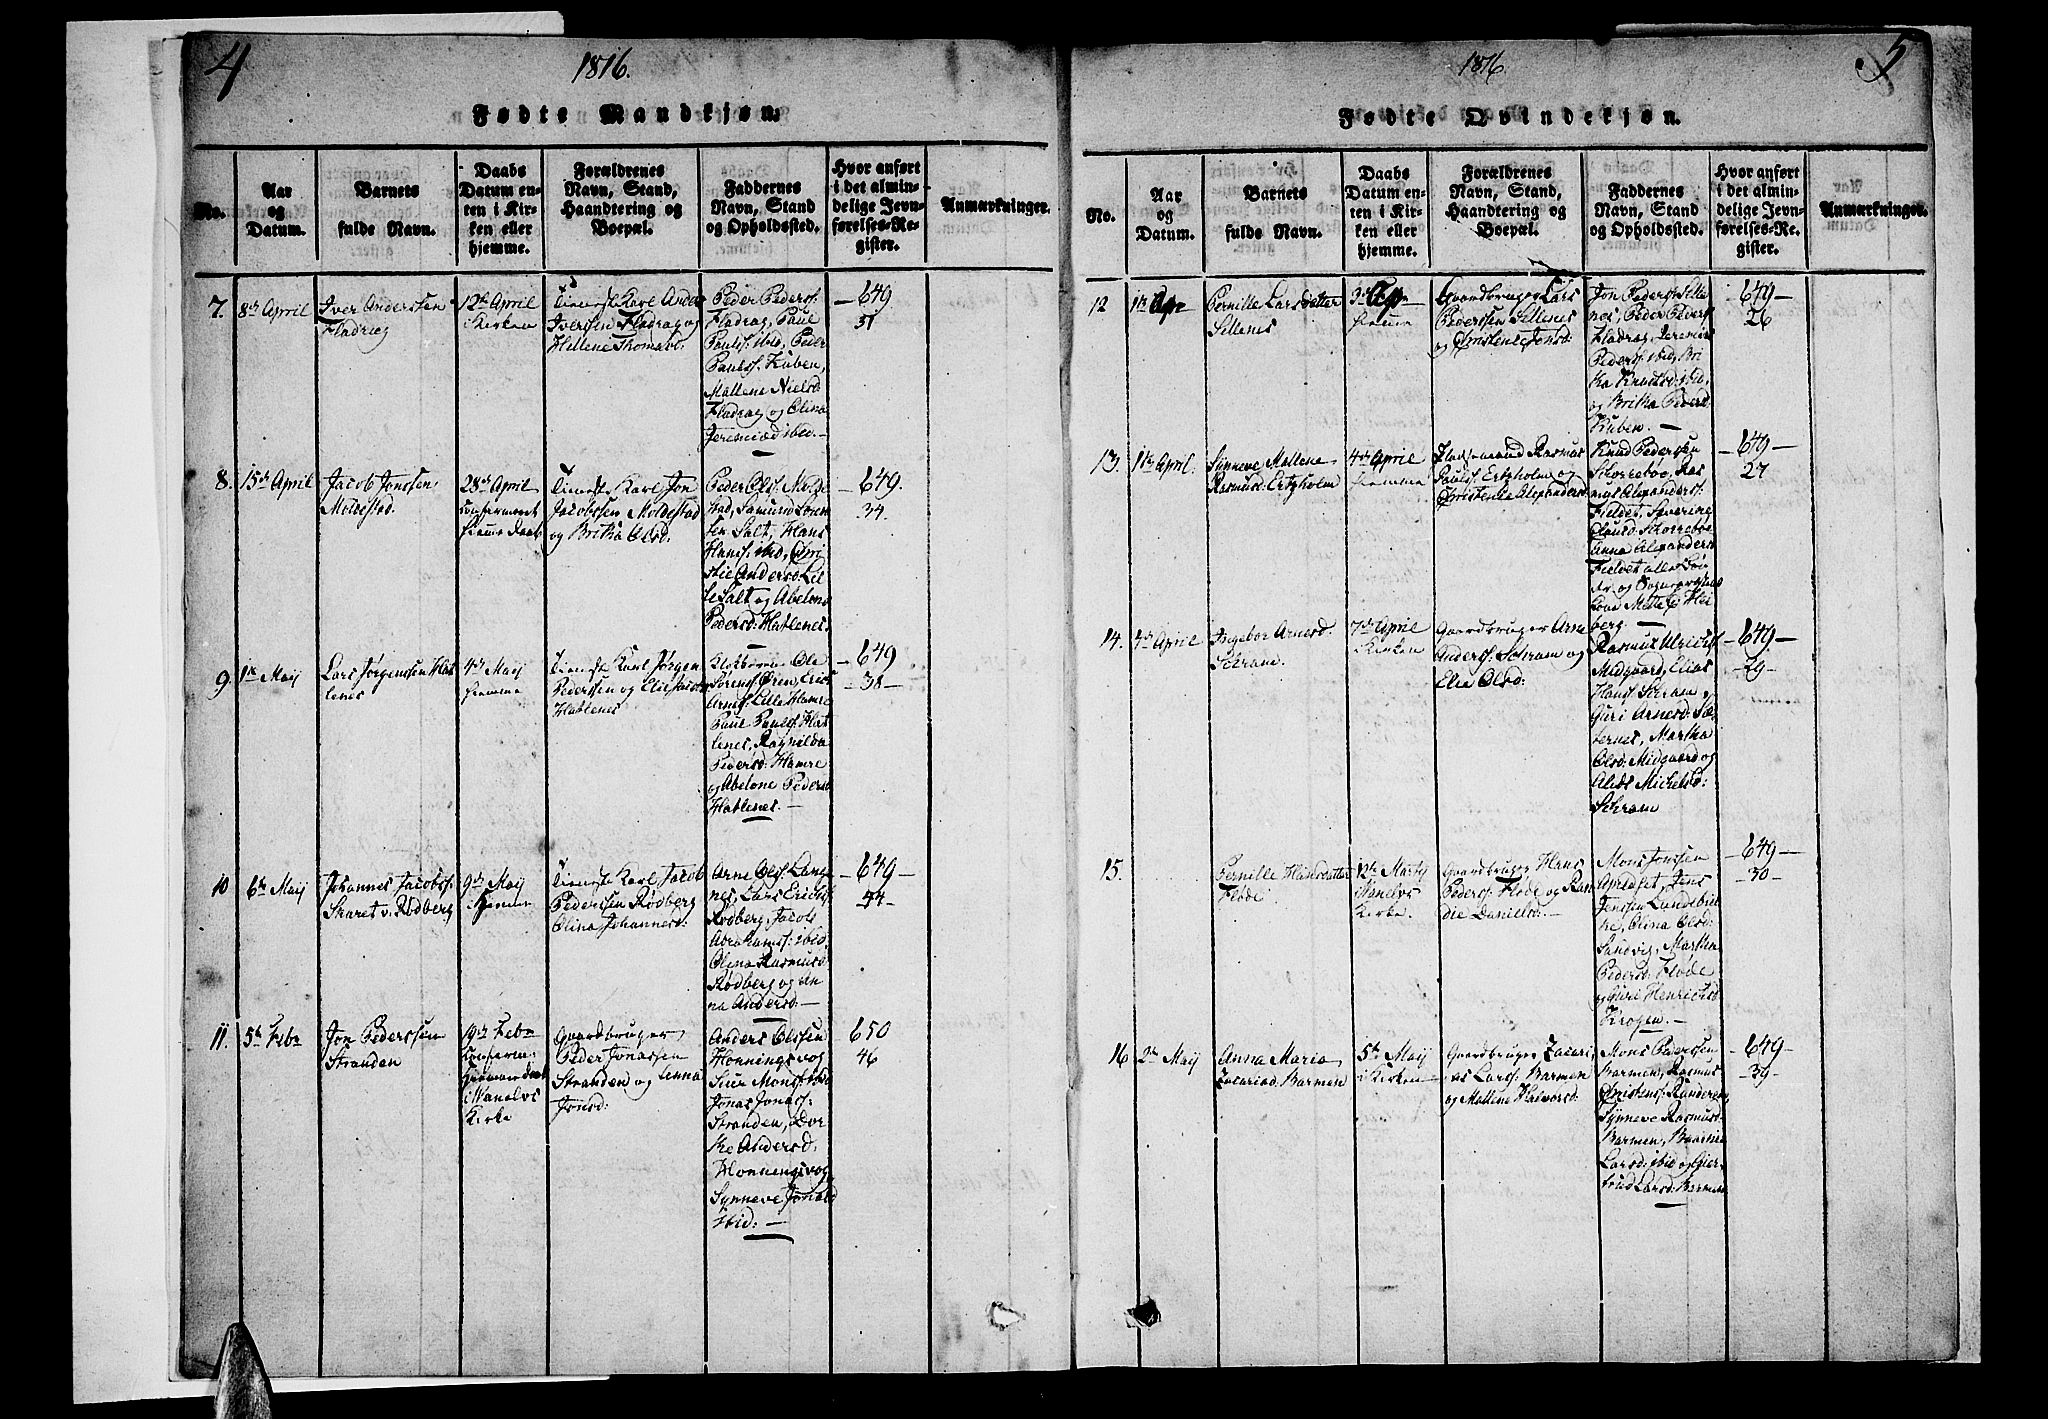 4
1816.
Fødte Mandkjøn.
No.
Aar
og
Datum.
Barnets
fulde Navn.
Daabs
Datum en-
ten i Kir-
ken eller
hjemme.
Forældrenes
Navn, Stand,
Haandtering og
Boepæl.
Faddernes
Navn, Stand
og Opholdssted.
Hvor anført
i det almin-
delige Jevn-
førelses-Re-
gister.
Anmærkninger.
7.
8de April
Iver Anderssen
Fladrag
12te April
i Kirken
Tieneste Karl Anders
Iverssen Fladrag og
Hellene Thomasd:
Peder Peders:
Fladrag, Paul
Pauls: ibid, Peder
Pauls: Kuben,
Mallene Nielsd:
Fladrag og Olina
Jeremiæd: ibid.—
—649.
31
8.
15de April
Jacob Jonssen
Moldestad.
28de April
Confirmeret
hjeme Daab
Tieneste Karl Jon
Jacobssen Moldestad
og Britha Olsd:
Peder Ols: Molde
stad,
sen Salt, Hans
Hans: ibid, Chri
stie Andersd: Lil
le Salt og Abelone
Pedersd: Hatlenes.
—649.
34.
9.
1te Maij
Lars Jørgenssen Hat
lenes
4de Maij
hiemme
Tieneste Karl Jørgen
Pederssen og Elie Jacobs
Hatlenes
Ole
Sørens:
Arnes: Lille Hamre
Paul Pauls: Hat
lenes, Ragnilda
Pedersd: Hamre
og Abelone Pedersd
Hatlenes.—
—649
—38—
10
6te Maij
Johannes Jacobs:
Skaret v. Rødberg
9de Maij
i Hiemme
Tieneste Karl Jacob
Pederssen Rødberg
Olina Johannesd:
Arne Ols: Lange
nes, Lars Erichs:
Rødberg, Jacob
Abrahams: ibid,
Olina Rasmusd:
Rødberg og An
na Andersd:—
—649—
44—
11.
5te Febr
Jon Pederssen
Stranden
19de Febr
Confirm:
Hiemme daab
i Vanelvs
Kirke
Gaardbruger
Peder Jonassen
Stranden og Lenna
Jonsd:
Anders Olssen
Honningsvog
Mons: ibid
Jonas Jonas:
Stranden, Dor
the Andersd:
Honningsvog
Synneve Jonasd
ibid:—
650
46
1816.
5
Fødte Qvindekjøn.
No.
Aar
og
Datum.
Barnets
fulde Navn.
Daabs
Datum en-
ten i Kir-
ken eller
hjemme.
Forældrenes
Navn, Stand,
Haandtering og
Boepæl.
Faddernes
Navn, Stand
og Opholdssted.
Hvor anført
i det almin-
delige Jevn-
førelses-Re-
gister.
Anmærkninger.
12
1te Apr
Pernille Larsdatter
Sellenes
3de Apr
hiemme
Gaardbruger Lars
Pederssen Sellenes
og Christence Jonsd:
Jon Peders: Selle
nes, Peder Peders:
Fladrag, Jeremias
Peders: ibid, Bri
tha Knudsd: ibid,
og Britha Pedersd:
Kuben.—
—649—
26
13.
1te April
Synneve Mallene
Rasmusd: Ertzholm
4de April
hiemme
Rasmus
Pauls: Ertzholm og
Christenche Alexandersd:
Knud Pederssen
Skorrebøe, Ras
mus Alexanders:
Fieldet, Severine
Skorrebøe
Anna Alexandersd
Fieldet
Mette Hei
berg.—
—649—
27
14.
4de April
Ingebor Arnesd:
Schram.
7de April
i Kirken
Gaardbruger Arne
Anders: Schram og
Elie Olsd:
Rasmus Ulrichs:
Midgaard, Elias
Hans: Schram
Guri Arnesd: Sæ
ternes, Martha
Olsd: Midgaard og
Alids Michelsd:
Schram
—649—
—29—
15.
Pernille Hansdatter
Flöde
12te Marty
i Vanelvs
Kirke.
Gaardbruger Hans
Peders: Flöde og Ran
die Danielsd:—
Mons Jonssen
Aarsæt, Jens
Jenssen Lundebrek
ke, Olina Olsd:
Sandvig, Marthe
Pedersd: Flöde
og Guri Henricksd
Krogen.—
—649—
—30—
16
2de Maij
Anna Maria
Zacariad: Barmen
5te Maij
i Kirken
Gaardbruger Zacari
as Lars: Barmen
og Mallene Halvorsd:
Mons Pederssen
Barmen, Rasmus
Christens: Runderen
Synneve Rasmusd:
Barmen,
Larsd: ibid og Gier
trud Larsd: Barmen
—649—
—39—